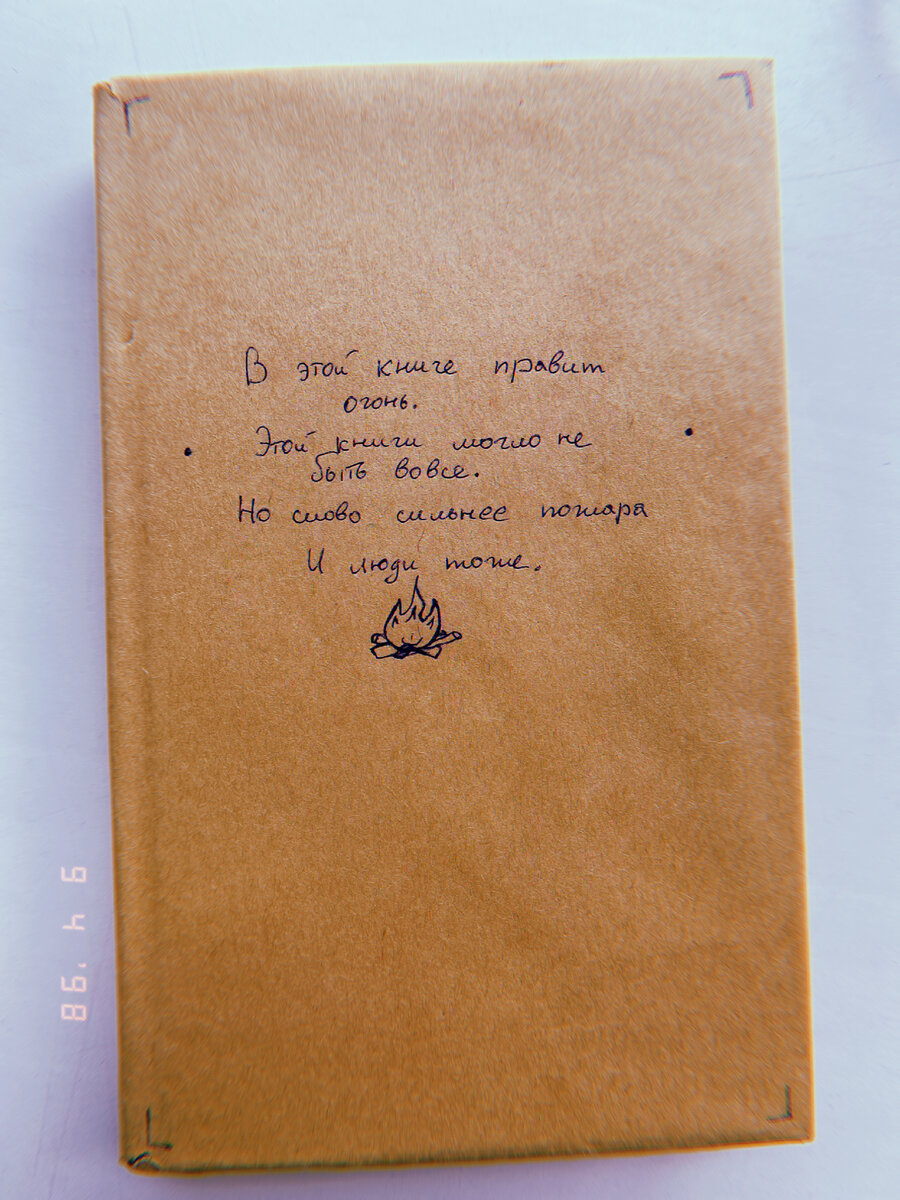 В этой книге правит
огонь.
Этой книги могло не
быть вовсе.
Но слово сильнее пожара
И люди тоже.
9 4 '98